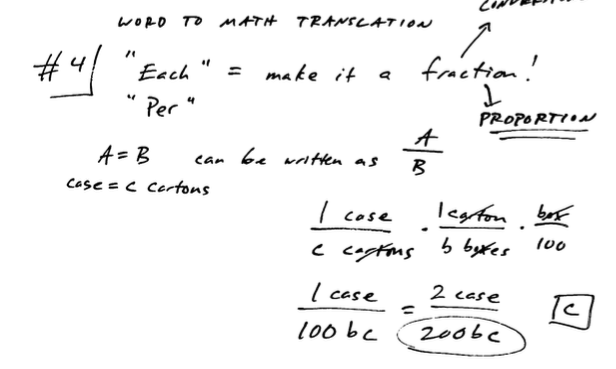 WORD TO MATH TRANSLATION
#4 "Each" = make it a fraction!
"Per"
PROPORTION
A = B can be written as A/B
case = c cartons
1 case / c cartons · 1 carton / b boxes · box / 100
1 case / 100 bc = 2 case / 200bc C